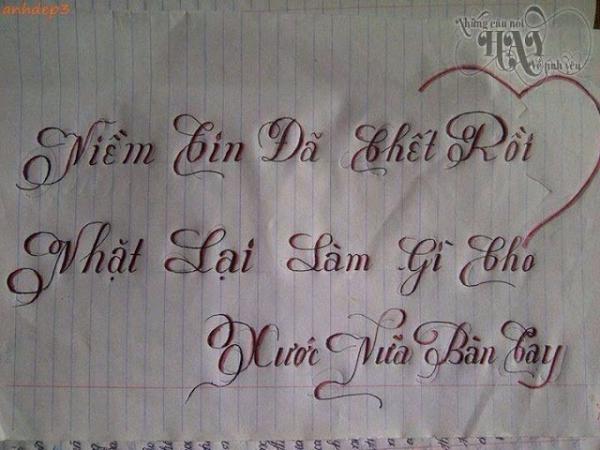 anhdep3
Những câu nói
HAY
Về tình yêu
Niềm Tin Đã Chết Rồi
Nhặt Lại Làm Gì Cho
Xước Nữa Bàn Tay